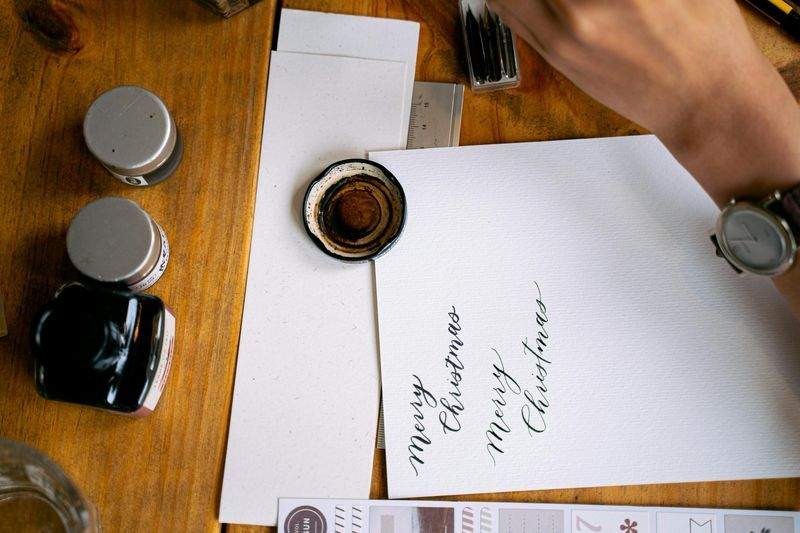 Merry
Christmas
Merry
Christmas
SUN
7